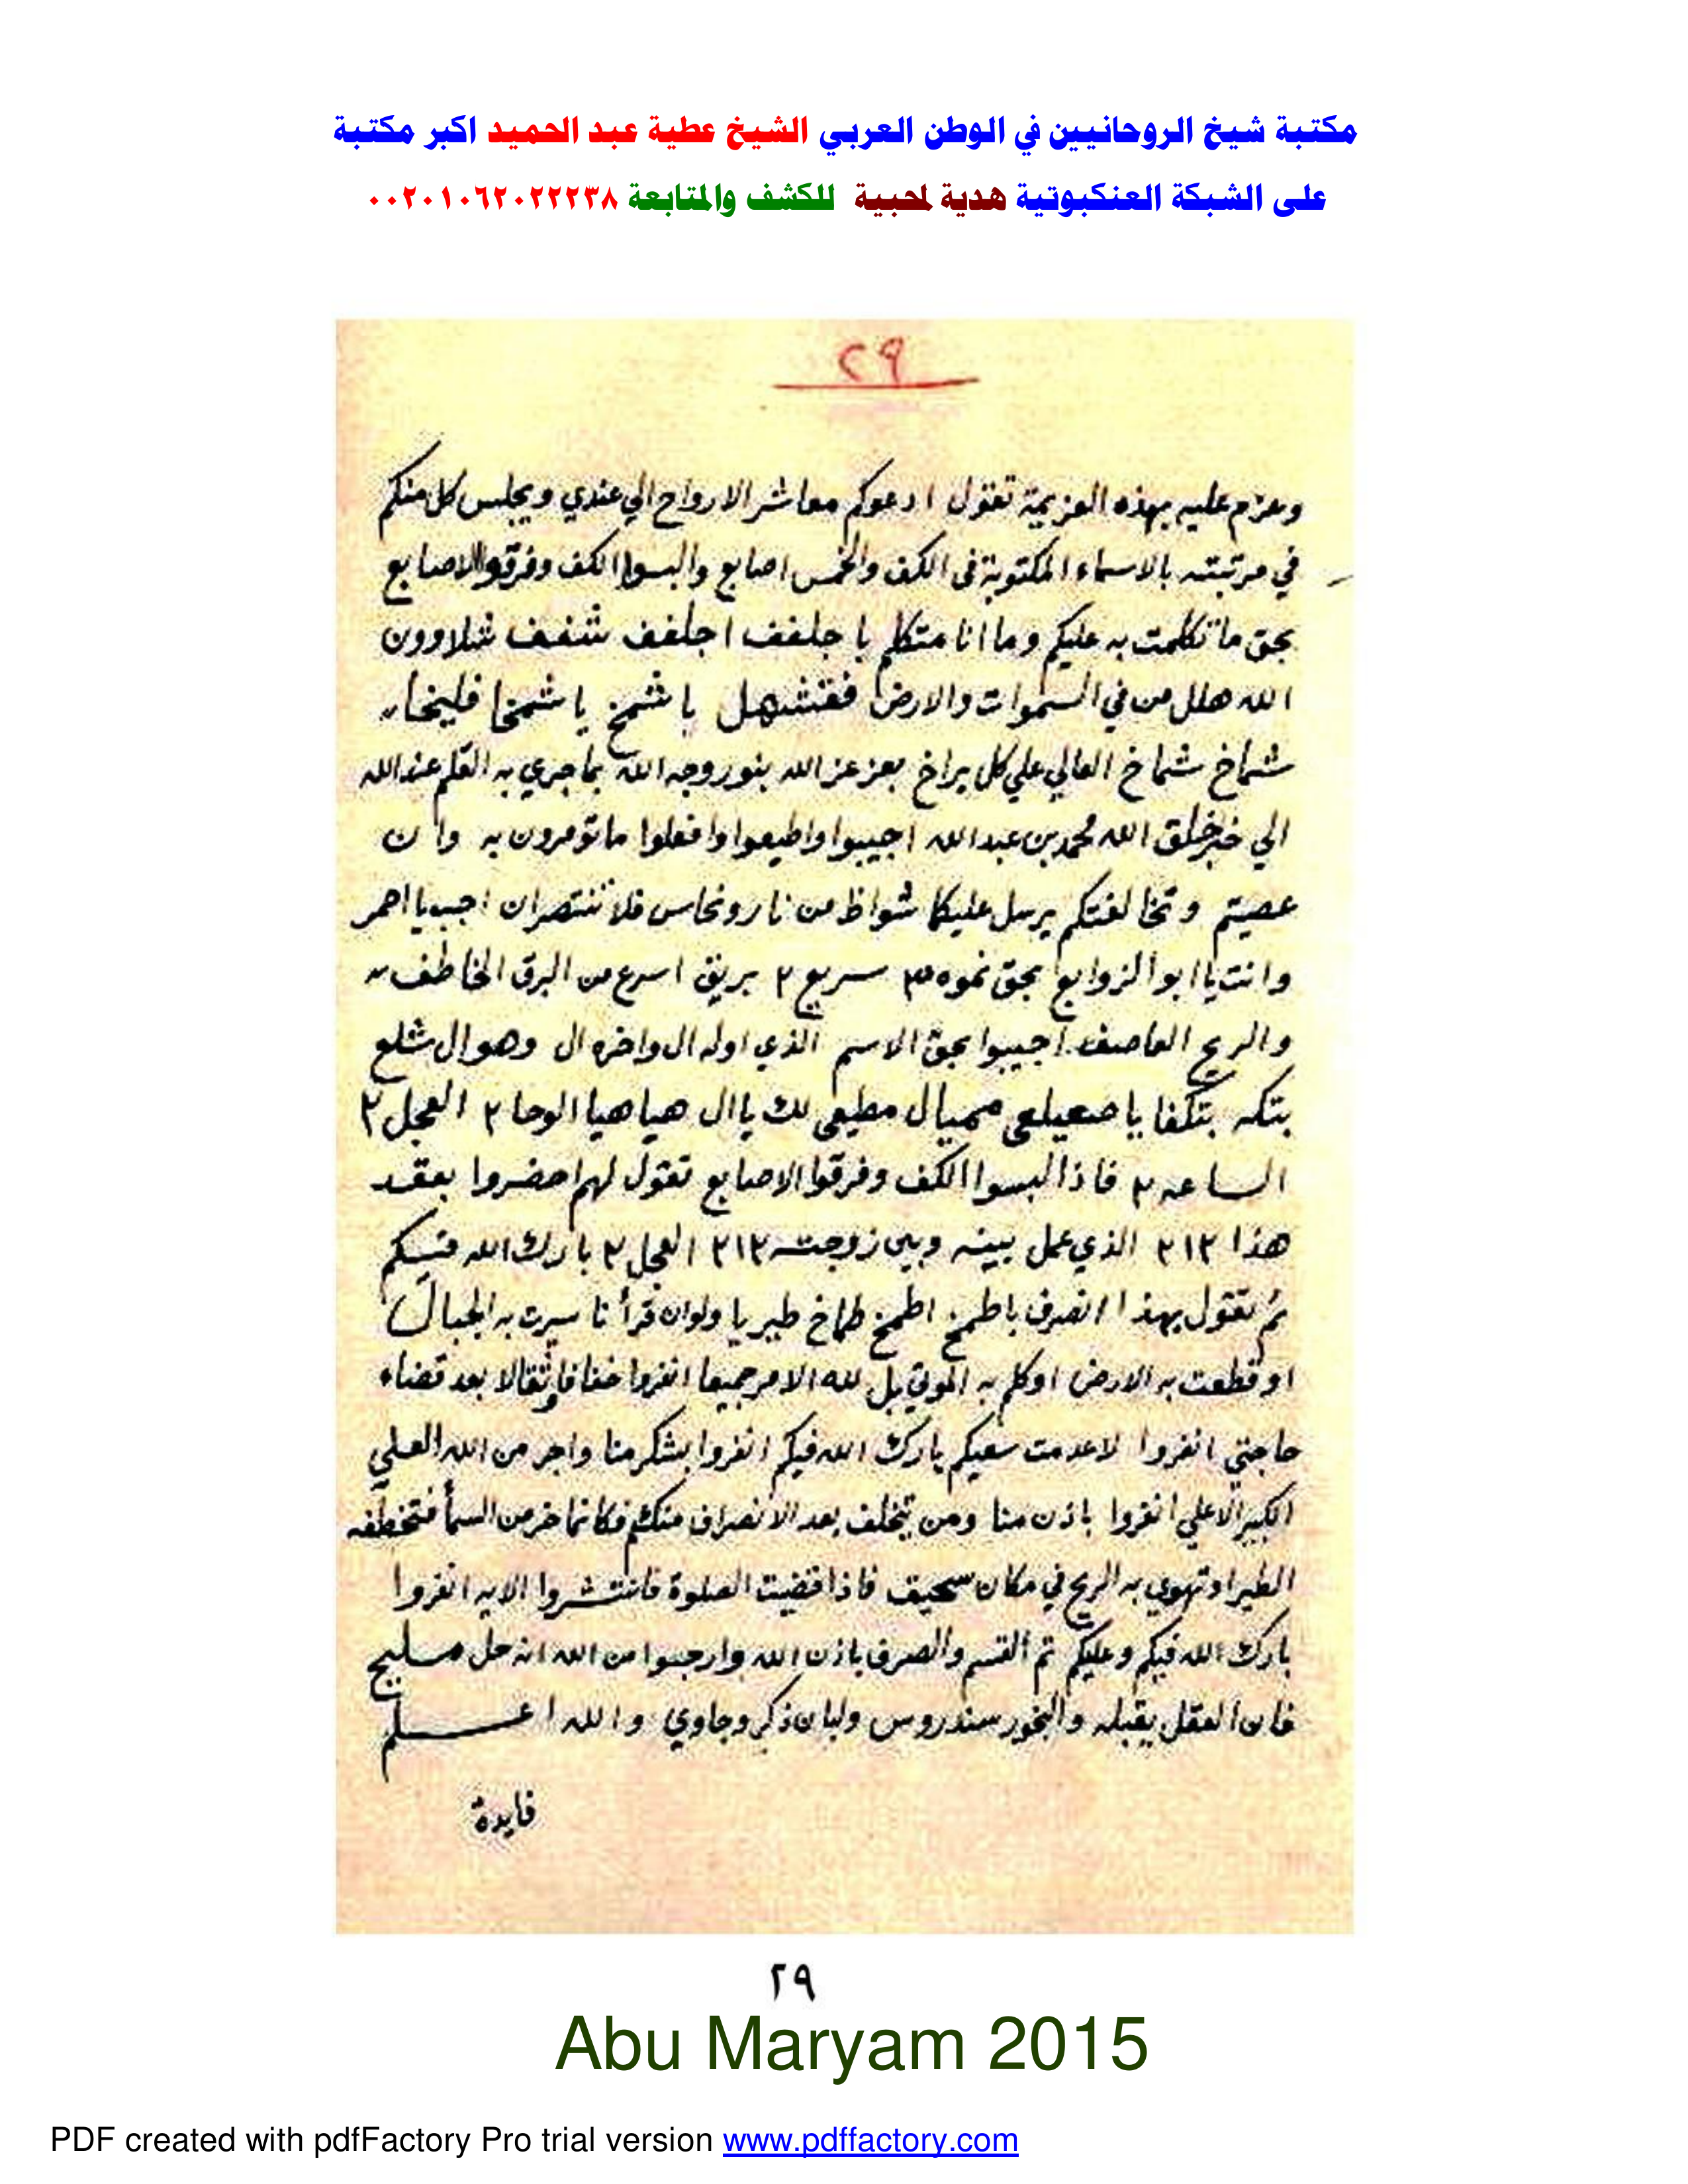 مكتبة شيخ الروحانيين في الوطن العربي الشيخ عطية عبد الحميد اكبر مكتبة
على الشبكة العنكبوتية هدية لمحبية للكشف والمتابعة ٠٠٢٠١٠٦٢٠٢٢٢٣٨
٢٩
وعزم عليه بهذه العزيمة تقول ادعوكم معاشر الارواح الي عندي ويجلس كل منكم
في مرتبته بالاسماء المكتوبة فى الكف والخمس اصابع والبسوا الكف وفرقوا الاصابع
بحق ما تكلمت به عليكم وما انا متكلم يا جلفف اجلفف شفف شلاوون
الله هلل من في السموات والارض فقشهل يا شمخ يا شمخا فليخا
شماخ شماخ العالي علي كل براخ بعز عز الله بنور وجه الله بما جري به القلم عند الله
الي خير خلق الله محمد بن عبد الله اجيبوا واطيعوا وافعلوا ما تومرون به وان
عصيتم وتخالفتكم يرسل عليكما شواظ من نار ونحاس فلا تنتصران اجب يا احمر
وانت يا ابو الزوابع بحق نموه ٣ سريع ٢ بريق اسرع من البرق الخاطف
والريح العاصف اجيبوا بحق الاسم الذي اوله ال واخره ال وهو ال شلع
بتكه بتكفا يا صعيلعي مميال مطيعى لك يا ال هيا هيا الوحا ٢ العجل ٢
الساعه ٢ فاذا البسوا الكف وفرقوا الاصابع تقول لهم احضروا بعقد
هذا ٢١٢ الذي عمل بينه وبين زوجته ٢١٢ العجل ٢ بارك الله فيكم
ثم تقول بهذا الصرف باطمخ اطمخ طماخ طيريا ولو ان قرأنا سيرت به الجبال
او قطعت به الارض او كلم به الموتي بل لله الامر جميعا انفروا خفافا وثقالا بعد قضاء
حاجتي انفروا لا عدمت سعيكم بارك الله فيكم انفروا بشكر منا واجر من الله العلي
الكبير الاعلي انفروا باذن منا ومن يتخلف بعد الانصراف منكم فكانما خر من السمأ فتخطفه
الطير او تهوي به الريح في مكان سحيق فاذا قضيت الصلوة فانتشروا الايه انفروا
بارك الله فيكم وعليكم تم القسم والصرف باذن الله وارجبوا من الله انه حل مليح
فان العقل يقبله والبخور سندروس ولبان ذكر وجاوي والله اعلم
فايدة
٢٩
Abu Maryam 2015
PDF created with pdfFactory Pro trial version www.pdffactory.com